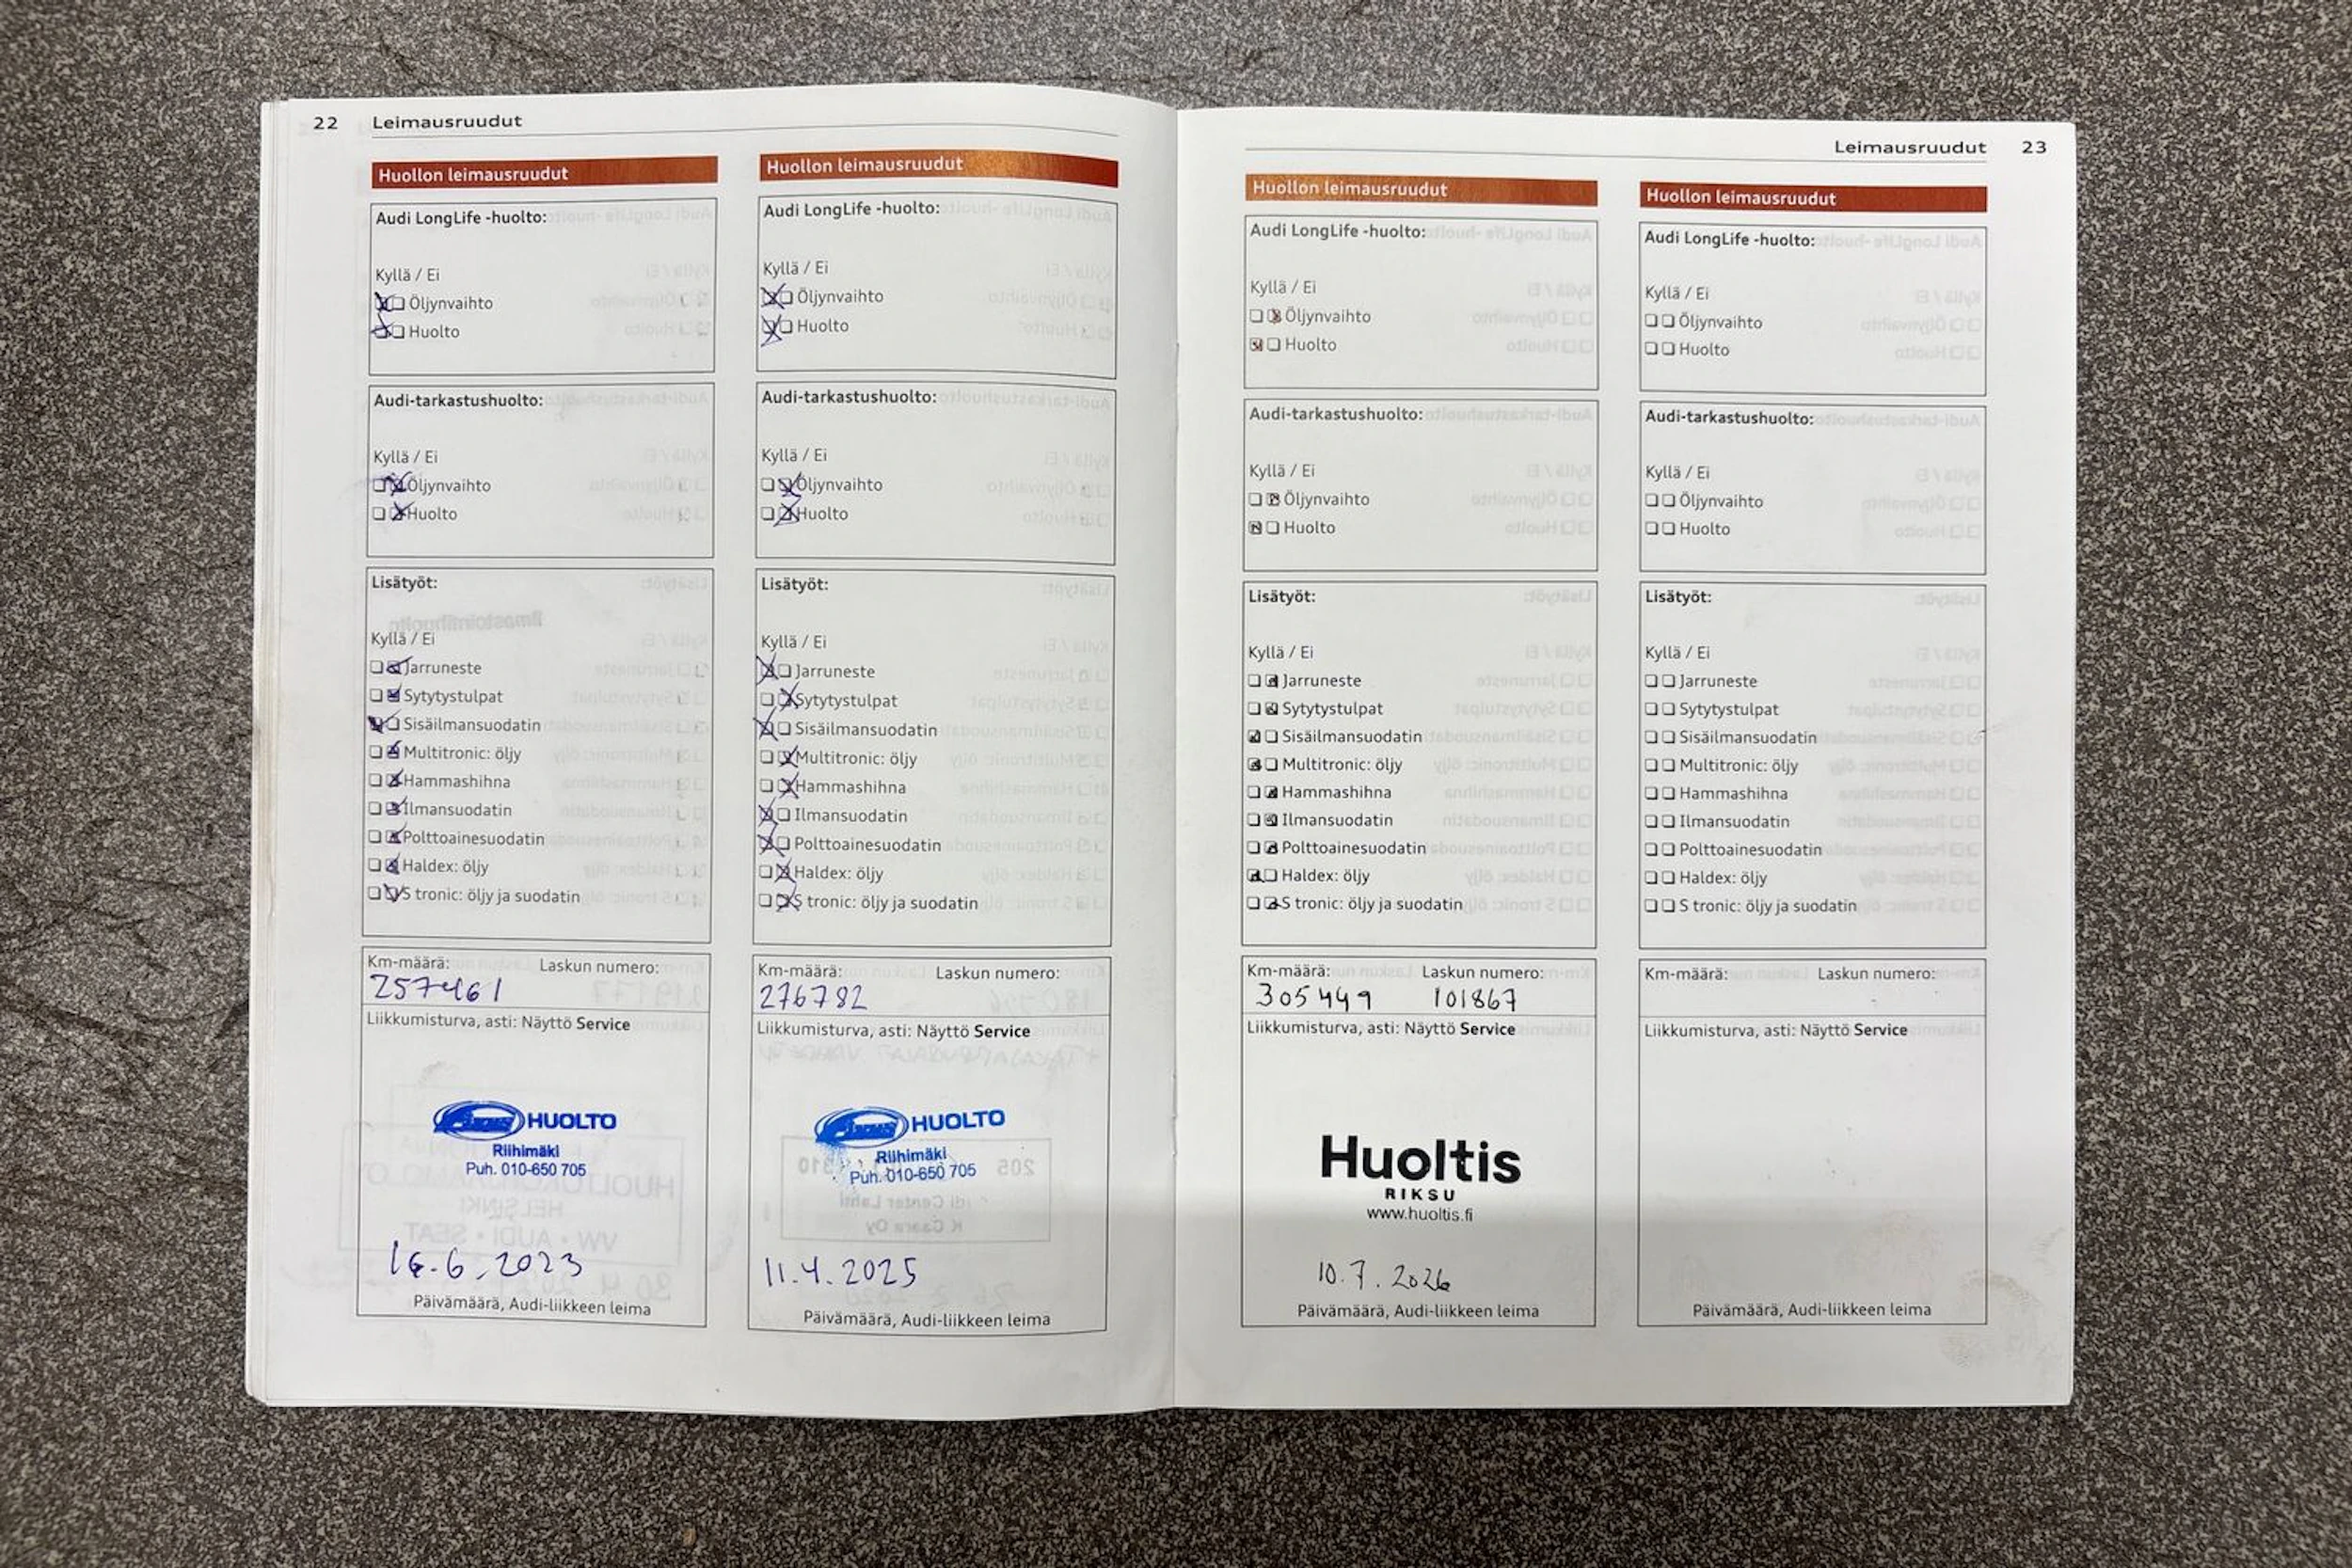 22 Leimausruudut
Huollon leimausruudut
Audi LongLife -huolto:
Kyllä / Ei
Öljynvaihto
Huolto
Audi-tarkastushuolto:
Kyllä / Ei
Öljynvaihto
Huolto
Lisätyöt:
Kyllä / Ei
Jarruneste
Sytytystulpat
Sisäilmansuodatin
Multitronic: öljy
Hammashihna
Ilmansuodatin
Polttoainesuodatin
Haldex: öljy
S tronic: öljy ja suodatin
Km-määrä: Laskun numero:
257461
Liikkumisturva, asti: Näyttö Service
HUOLTO
Riihimäki
Puh. 010-650 705
16.6.2023
Päivämäärä, Audi-liikkeen leima
Huollon leimausruudut
Audi LongLife -huolto:
Kyllä / Ei
Öljynvaihto
Huolto
Audi-tarkastushuolto:
Kyllä / Ei
Öljynvaihto
Huolto
Lisätyöt:
Kyllä / Ei
Jarruneste
Sytytystulpat
Sisäilmansuodatin
Multitronic: öljy
Hammashihna
Ilmansuodatin
Polttoainesuodatin
Haldex: öljy
S tronic: öljy ja suodatin
Km-määrä: Laskun numero:
276782
Liikkumisturva, asti: Näyttö Service
HUOLTO
Riihimäki
Puh. 010-650 705
11.4.2025
Päivämäärä, Audi-liikkeen leima
Leimausruudut 23
Huollon leimausruudut
Audi LongLife -huolto:
Kyllä / Ei
Öljynvaihto
Huolto
Audi-tarkastushuolto:
Kyllä / Ei
Öljynvaihto
Huolto
Lisätyöt:
Kyllä / Ei
Jarruneste
Sytytystulpat
Sisäilmansuodatin
Multitronic: öljy
Hammashihna
Ilmansuodatin
Polttoainesuodatin
Haldex: öljy
S tronic: öljy ja suodatin
Km-määrä: Laskun numero:
305449 101867
Liikkumisturva, asti: Näyttö Service
Huoltis
RIKSU
www.huoltis.fi
10.7.2026
Päivämäärä, Audi-liikkeen leima
Huollon leimausruudut
Audi LongLife -huolto:
Kyllä / Ei
Öljynvaihto
Huolto
Audi-tarkastushuolto:
Kyllä / Ei
Öljynvaihto
Huolto
Lisätyöt:
Kyllä / Ei
Jarruneste
Sytytystulpat
Sisäilmansuodatin
Multitronic: öljy
Hammashihna
Ilmansuodatin
Polttoainesuodatin
Haldex: öljy
S tronic: öljy ja suodatin
Km-määrä: Laskun numero:
Liikkumisturva, asti: Näyttö Service
Päivämäärä, Audi-liikkeen leima